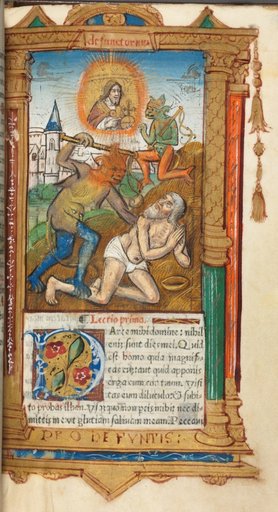 Ad defunctorum
¶ Lectio prima.
Parce mihi domine: nihil
enim sunt dies mei. Quid
est homo quia magnifi
cas eum: aut quid apponis
erga eum cor tuum. Visi
tas eum diluculo: & subi
to probas illum. Usquequo non parcis michi nec di
mittis me ut glutiam salivam meam. Peccavi
PRO DEFUNTIS: